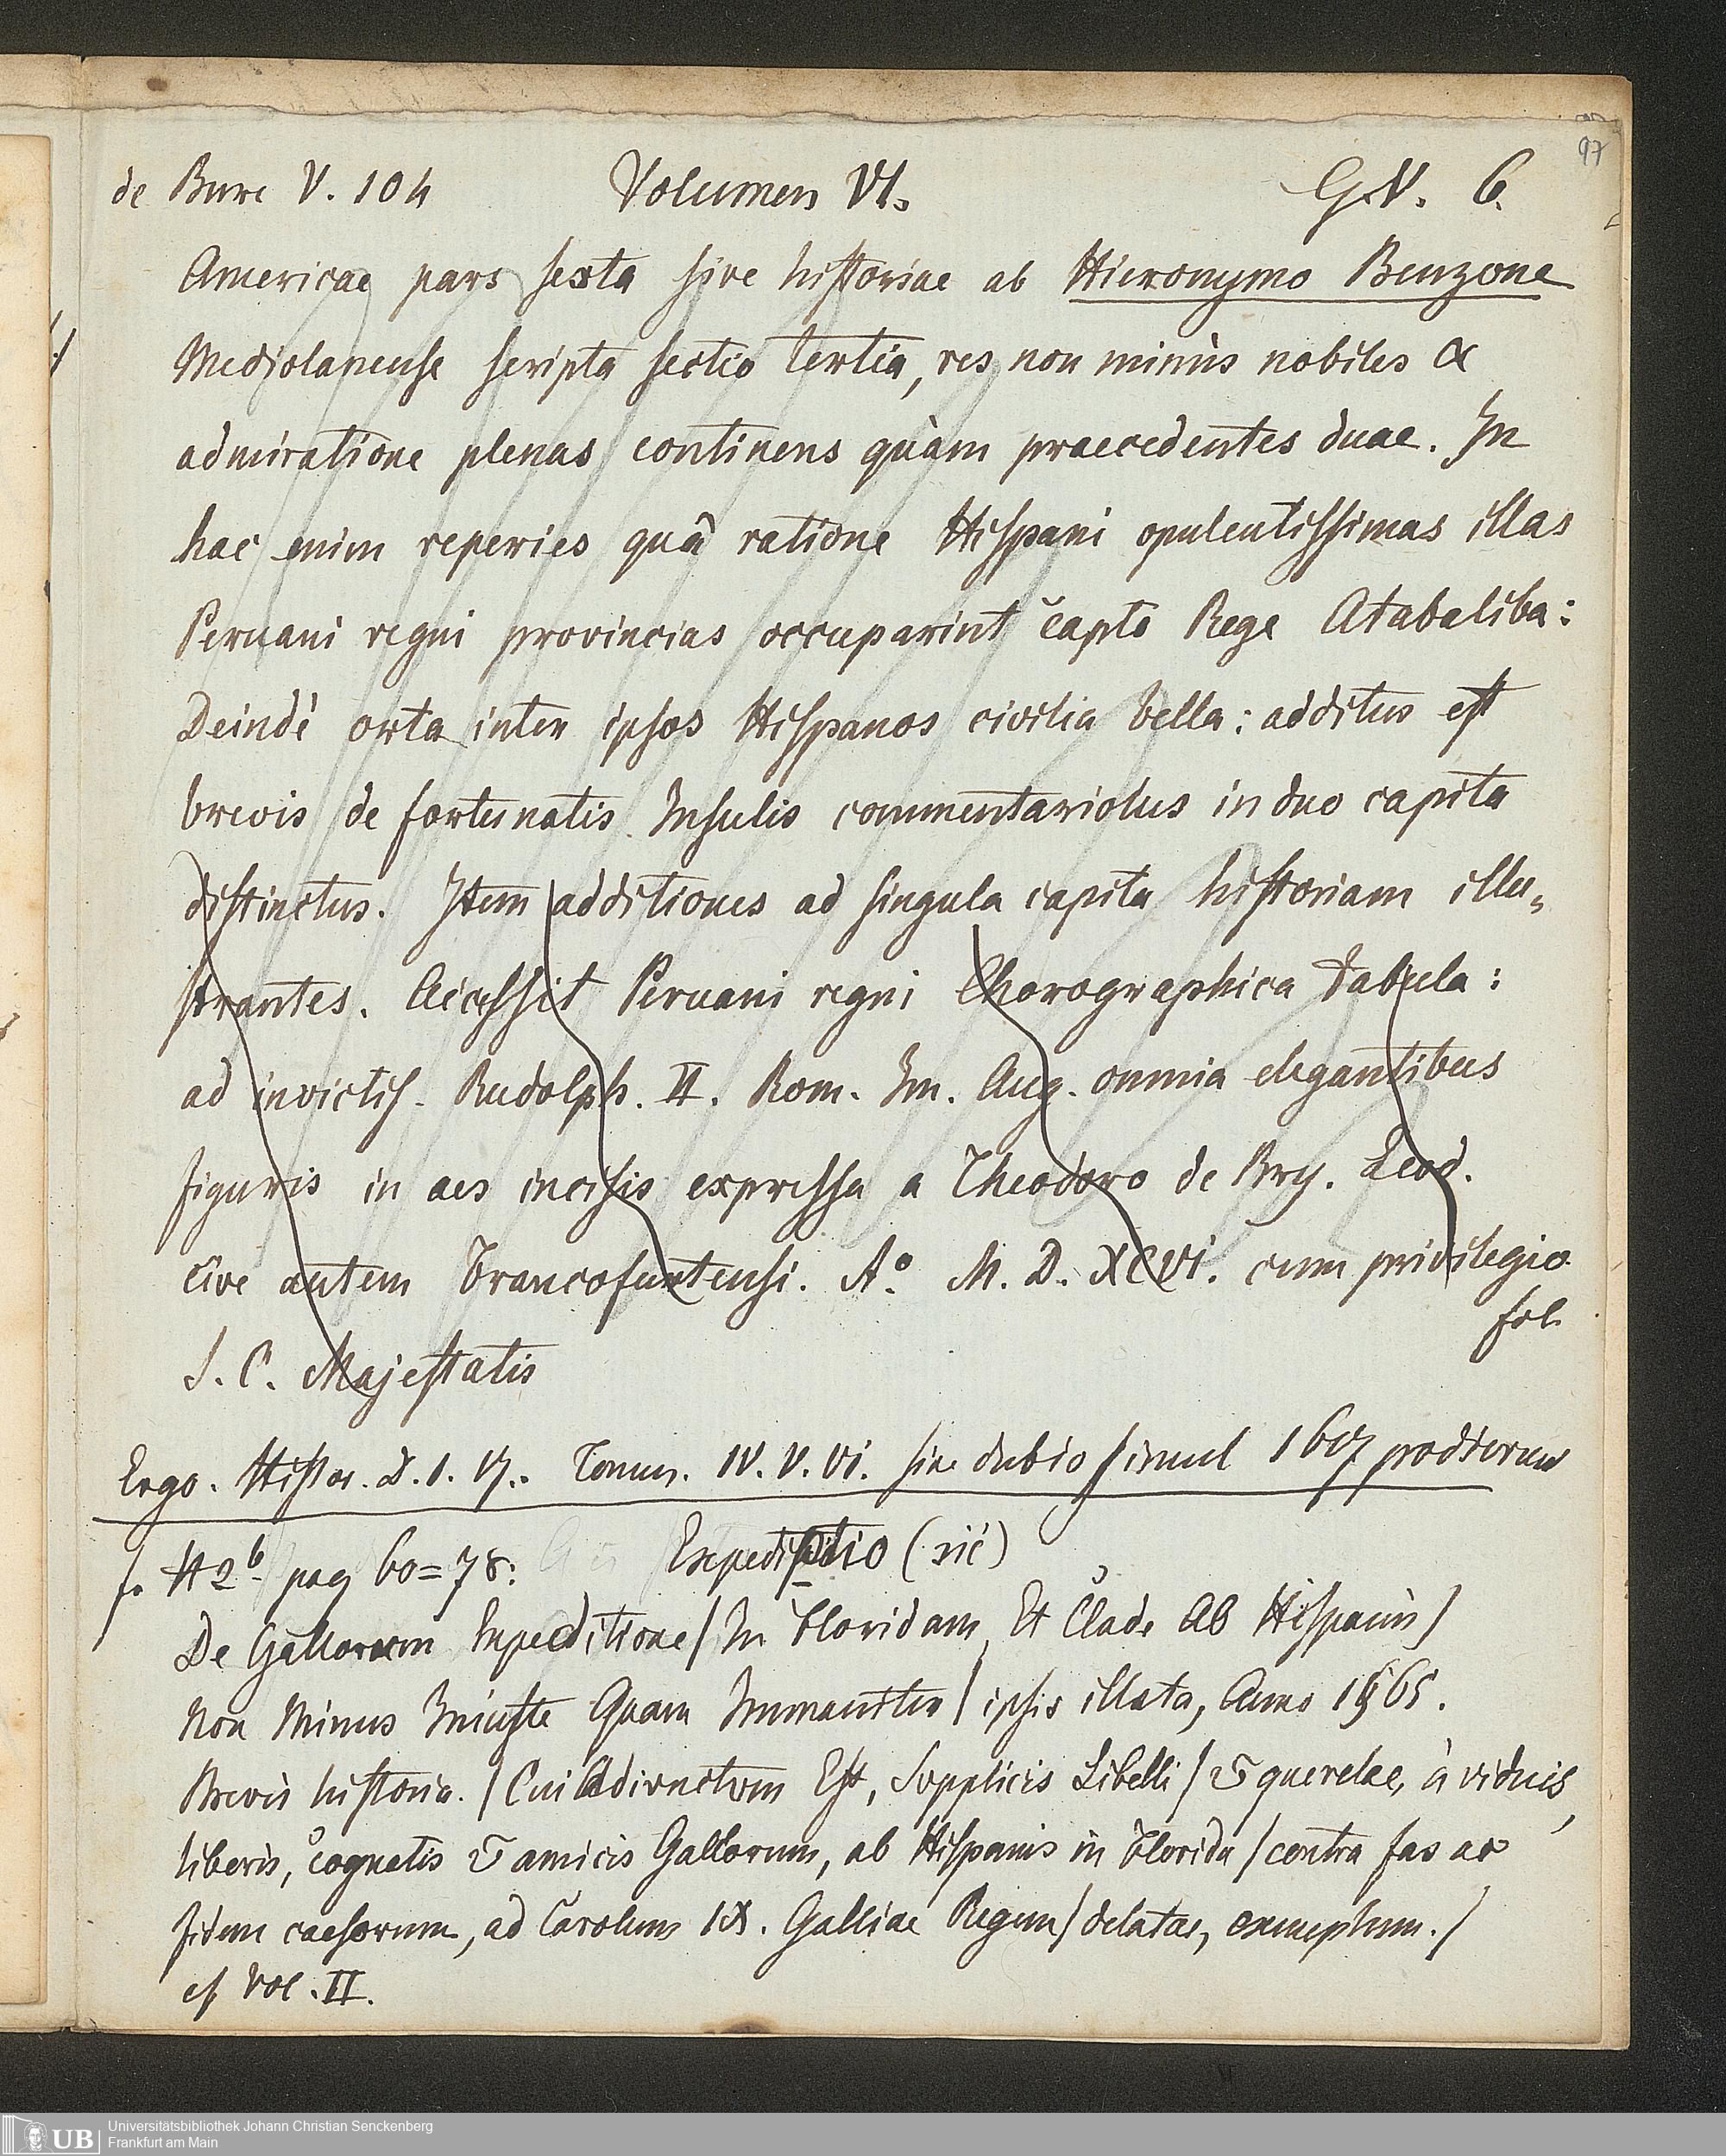 97
de Bure V. 104 Volumen VI. G.V. 6.
Americae pars sexta sive historiae ab Hieronymo Benzone
Mediolanense scripta sectio tertia, res non minùs nobiles &
admiratione plenas continens quàm praecedentes duae. In
hac enim reperies quâ ratione Hispani opulentissimas illas
Peruani regni provincias occuparint capto Rege Atabaliba:
Deindè orta inter ipsos Hispanos civilia bella: additus est
brevis de fortunatis Insulis commentariolus in duo capita
distinctus. Item additiones ad singula capita historiam illu-
strantes. Accessit Peruani regni Chorographica tabula:
ad invictis. Rudolph. II. Rom. Im. Aug. omnia elegantibus
figuris in aes incisis expressa a Theodoro de Bry. Leod.
cive autem Francofurtensi. Ao. M.D.XCVI. cum privilegio
fol.
S. C. Majestatis
Ergo. Histor. Tomus. IV. V. VI. sine dubio simul prodierunt
f. H2b pag 60=78: (sic)
De Gallorum Expeditione / In Floridam Et Clade Ab Hispanis /
Non Minus Iniuste Quam Immaniter / ipsis illata, Anno 1565.
Brevis historia. / Cui Adiunctum Est, Supplicis Libelli / & querelae, à viduis,
liberis, cognatis & amicis Gallorum, ab Hispanis in Florida / contra fas ac
fidem caesorum, ad Carolum IX. Galliae Regem / delatae, exemplum. /
cf Vol. II.
UB Universitätsbibliothek Johann Christian Senckenberg
Frankfurt am Main